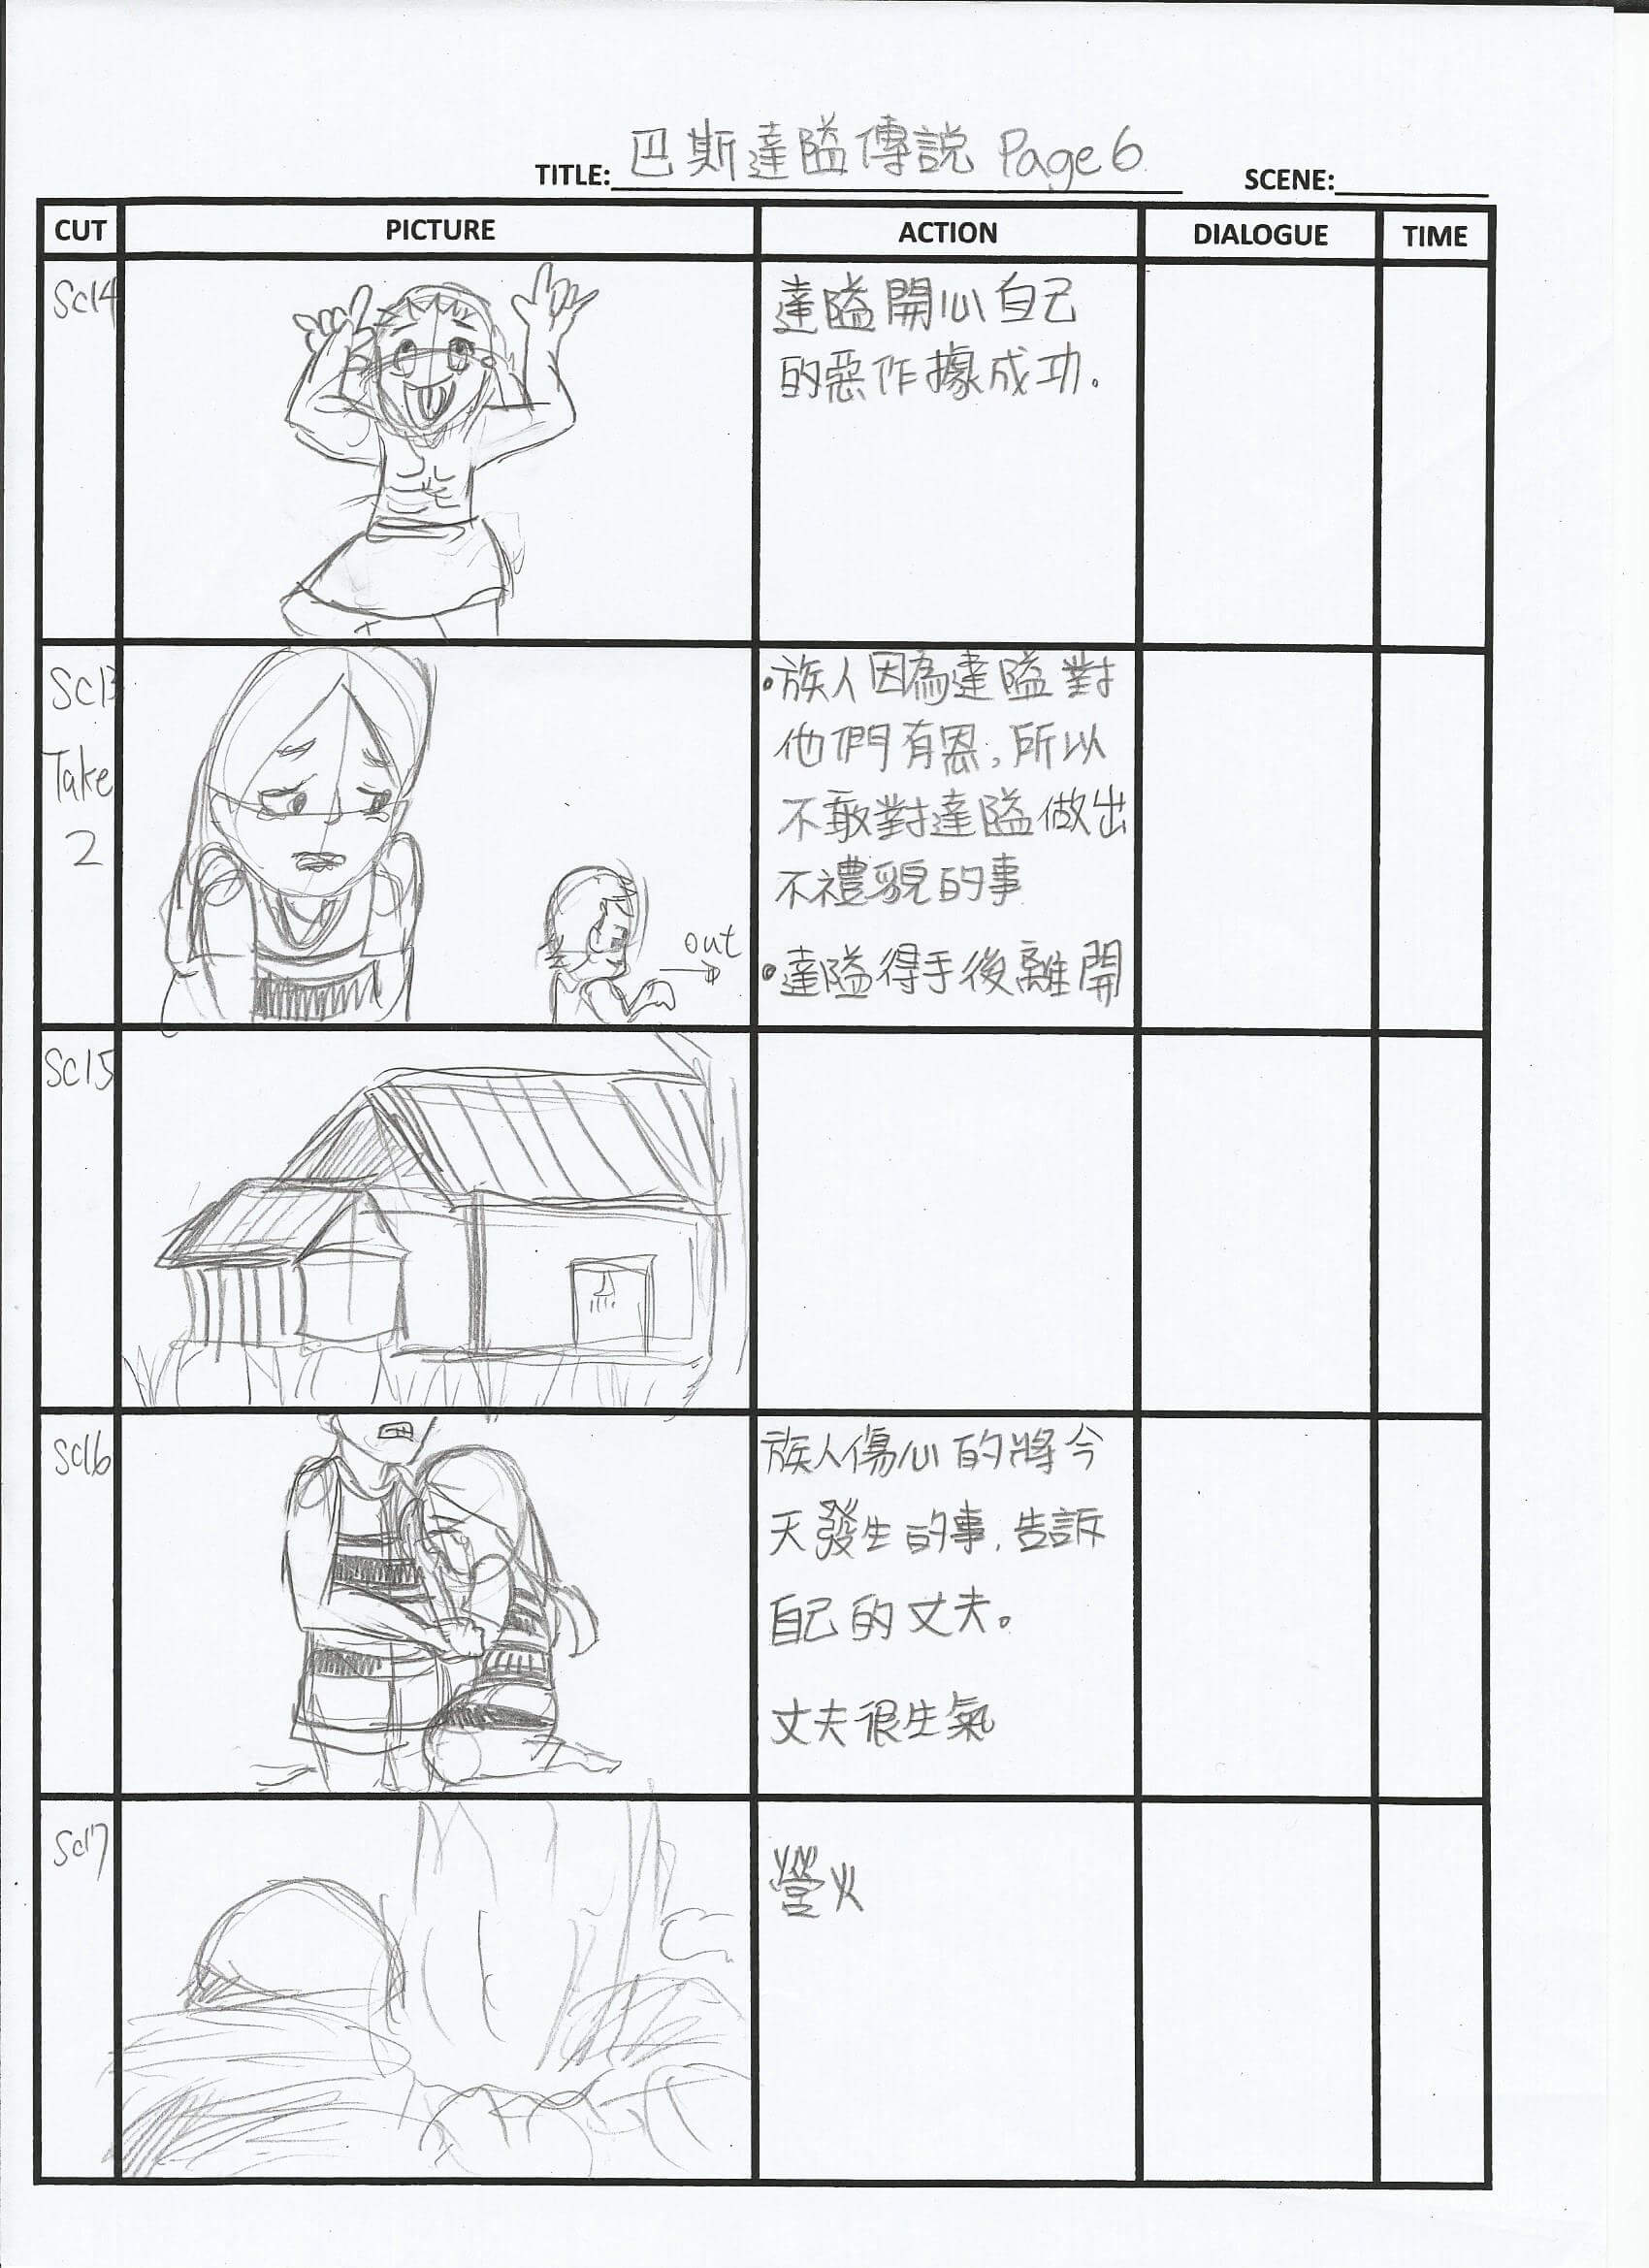 TITLE: 巴斯達隘傳說 Page 6
SCENE:
CUT PICTURE ACTION DIALOGUE TIME
Sc14
達隘開心自己
的惡作據成功.
Sc13
Take
2
•族人因為達隘對
他們有恩,所以
不敢對達隘做出
不禮貌的事
out
•達隘得手後離開
Sc15
Sc16
族人傷心的將今
天發生的事,告訴
自己的丈夫。
丈夫很生氣
Sc17
營火